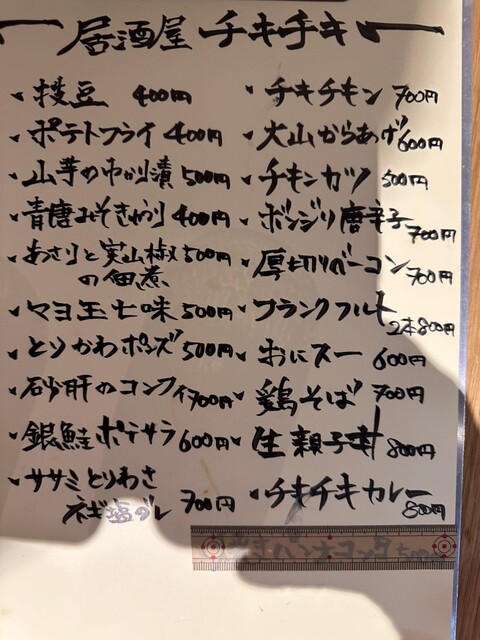 居酒屋 チキチキ
枝豆 400円
ポテトフライ 400円
山芋のわさび漬 500円
青唐みそきゅうり 400円
あさりと実山椒 500円
の佃煮
マヨ玉七味 500円
とりかわポンズ 500円
砂肝のコンフィ 700円
銀鮭ポテサラ 600円
ササミとりわさ
ネギ塩ダレ 700円
チキチキン 700円
大山からあげ 600円
チキンカツ 500円
ボンジリ唐辛子 700円
厚切りベーコン 700円
フランクフルト 2本800円
おにスー 600円
鶏そば 700円
生親子丼 800円
チキチキカレー 800円
パンナコッタ